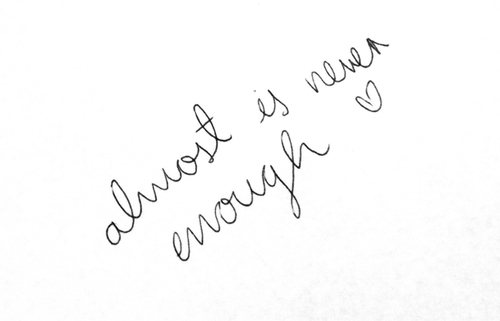 almost is never
enough ♡